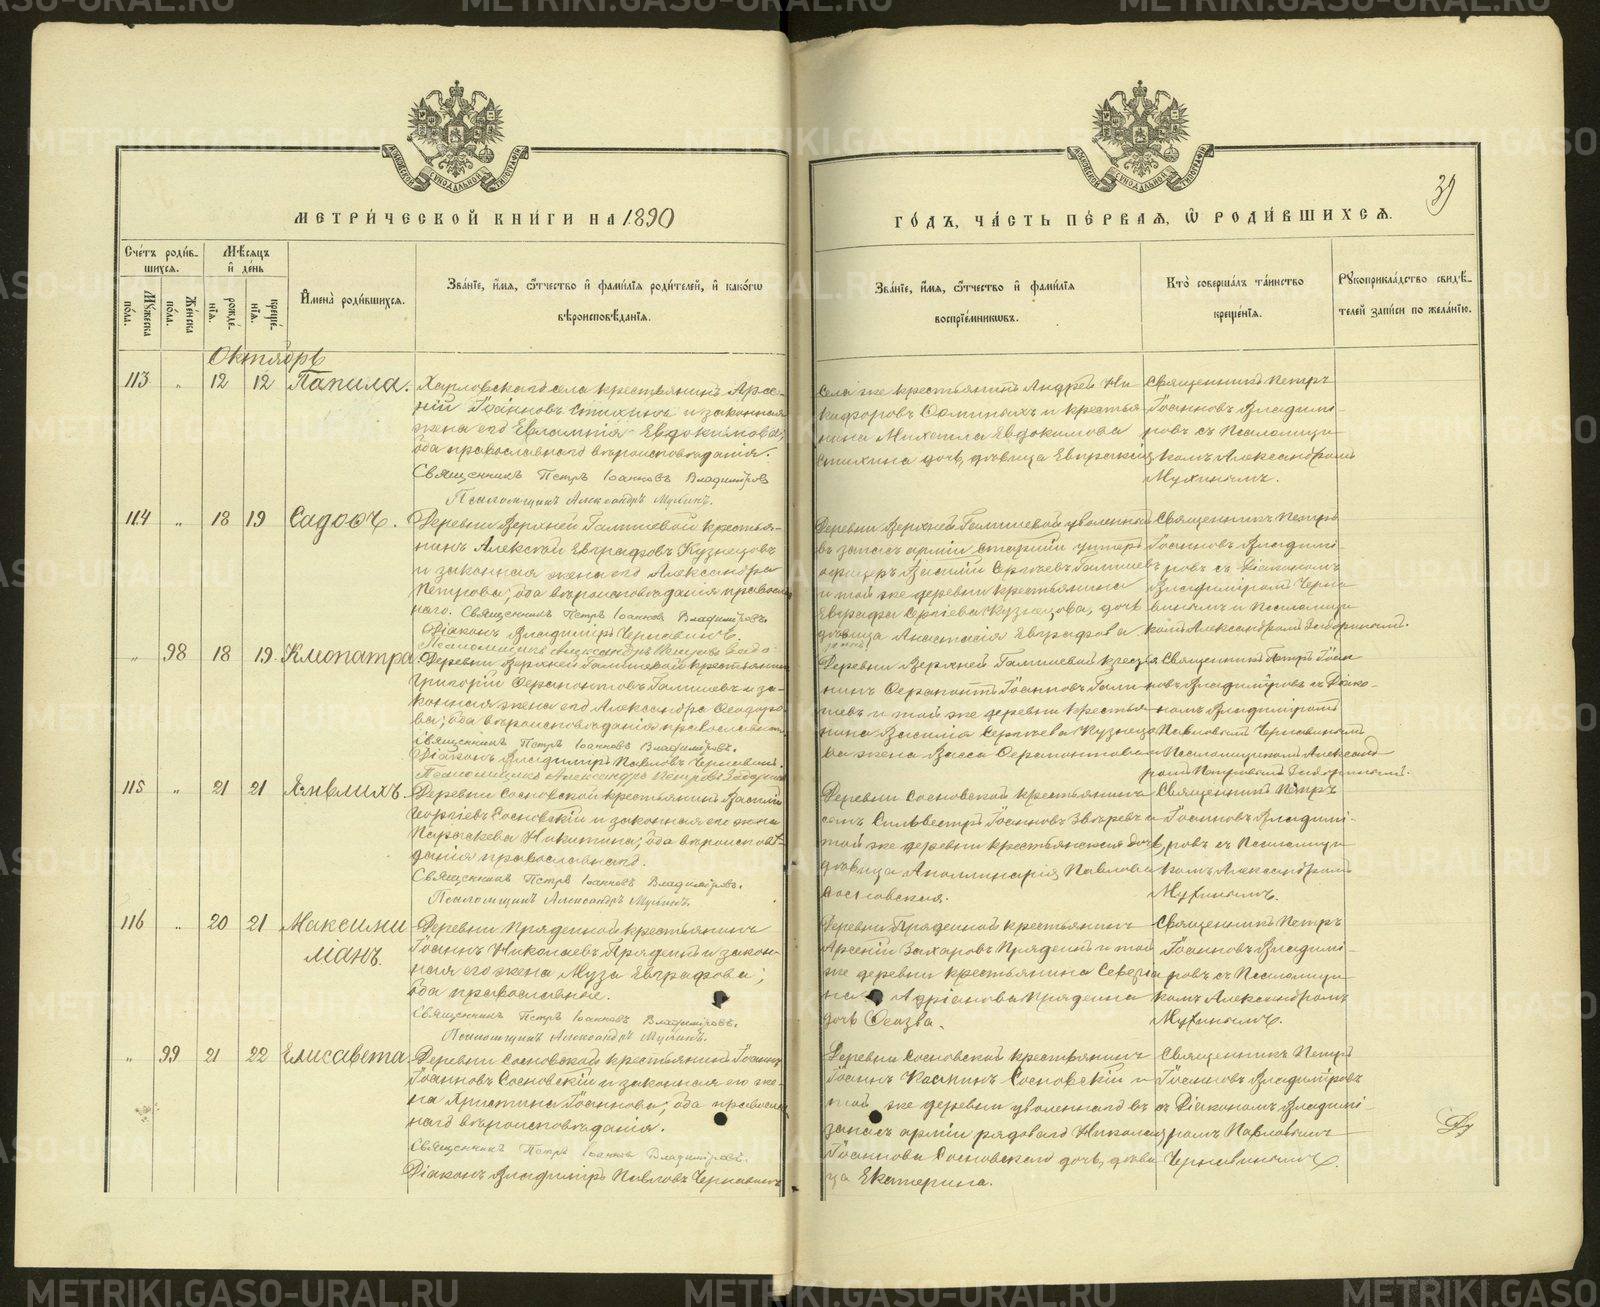 МЕТРИ́ЧЕСКОЙ КНИ́ГИ НА 1890
ГО́ДЪ, ЧА́СТЬ ПЕ́РВАЯ, Ѿ РОДИ́ВШИХСЯ.
39
Сче́тъ роди́в-
шихся.
Мѣ́сяцъ
и҆ де́нь
Мꙋ́жеска по́ла.
Же́нска по́ла.
рожде́-нїѧ.
креще́-нїѧ.
И҆мена̀ роди́вшихся.
Зва́нїе, и҆́мѧ, ѻ҆́тчество и҆ фами́лїѧ роди́телей, и҆ како́гѡ
вѣроисповѣ́данїѧ.
Зва́нїе, и҆́мѧ, ѻ҆́тчество и҆ фами́лїѧ
воспрїе́мникѡвъ.
Кто̀ соверша́лъ та́инство
креще́нїѧ.
Рꙋкоприкла́дство свидѣ́-
телей за́писи по жела́нїю.
Октябрь
113 „ 12 12 Папила.
Харловскаго села крестьянинъ Арсе-
ній Іоанновъ Стихинъ и законная
жена его Евлампія Евдокимова;
оба православнаго вѣроисповѣданія.
Священникъ Петръ Іоанновъ Владиміровъ
Псаломщикъ Александръ Мухинъ.
села же крестьянинъ Андрей Ни-
кифоровъ и крестья-
нина Михаила Евдокимова
Стихина дочь, дѣвица Евпраксія
Священникъ Петръ
Іоанновъ Владимі-
ровъ съ Псаломщи-
комъ Александромъ
Мухинымъ.
114 „ 18 19 Садофъ.
Деревни Верхней Галишевой крестья-
нинъ Алексѣй Евграфовъ Кузнецовъ
и законная жена его Александра
Петрова; оба вѣроисповѣданія православ-
наго. Священникъ Петръ Іоанновъ Владиміровъ
Діаконъ Владиміръ Чернавинъ.
Псаломщикъ Александръ Петровъ
Деревни Верхней Галишевой уволенный
въ запасъ арміи старшій унтеръ
офицеръ Василій Сергѣевъ Галишевъ
и той же деревни крестьянина
Евграфа Сергіева Кузнецова, дочь
дѣвица Анастасія Евграфова
Священникъ Петръ
Іоанновъ Владимі-
ровъ съ Діакономъ
Владиміромъ Черна-
винымъ и Псаломщи-
комъ Александромъ
„ 98 18 19. Клеопатра
Деревни Верхней Галишевой крестьянинъ
Григорій Ферапонтовъ Галишевъ и за-
конная жена его Александра Ѳеодоро-
ва; оба вѣроисповѣданія православнаго
Священникъ Петръ Іоанновъ Владиміровъ.
Діаконъ Владиміръ Павловъ Чернавинъ.
Псаломщикъ Александръ Петровъ
Деревни Верхней Галишевой крестья-
нинъ Ферапонтъ Іоанновъ Гали-
шевъ и той же деревни крестья-
нина Василія Сергѣева Кузнецо-
ва жена Васса Ферапонтова
Священникъ Петръ Іоан-
новъ Владиміровъ съ Діако-
номъ Владиміромъ
Павловымъ Чернавинымъ
и Псаломщикомъ Александ-
ромъ Петровымъ
115 „ 21 21 Ямвлихъ.
Деревни Сосновской крестьянинъ Василій
Георгіевъ Сосновскій и законная его жена
Параскева Никитина; оба вѣроисповѣ-
данія православнаго.
Священникъ Петръ Іоанновъ Владиміровъ.
Псаломщикъ Александръ Мухинъ.
Деревни Сосновской крестьянинъ
Сильвестръ Іоанновъ Звѣревъ и
той же деревни крестьянская дочь,
дѣвица Аполлинарія Павлова
Сосновская.
Священникъ Петръ
Іоанновъ Владимі-
ровъ съ Псаломщи-
комъ Александромъ
Мухинымъ.
116 „ 20 21 Максими
ліанъ.
Деревни Пряденой крестьянинъ
Іоаннъ Николаевъ Пряденъ и закон-
ная его жена Муза Евграфова;
оба православные.
Священникъ Петръ Іоанновъ Владиміровъ.
Псаломщикъ Александръ Мухинъ.
Деревни Пряденой крестьянинъ
Арсеній Захаровъ Пряденъ и той
же деревни крестьянина
на Адріанова Прядеина
дочь
Священникъ Петръ
Іоанновъ Владимі-
ровъ съ Псаломщи-
комъ Александромъ
Мухинымъ.
„ 99 21 22 Елисавета.
Деревни Сосновской крестьянинъ Іоаннъ
Іоанновъ Сосновскій и законная его же-
на Христина Іоаннова; оба православ-
наго вѣроисповѣданія.
Священникъ Петръ Іоанновъ Владиміровъ.
Діаконъ Владиміръ Павловъ Чернавинъ
Деревни Сосновской крестьянинъ
Іоаннъ Сосновскій и
той же деревни уволеннаго въ
запасъ арміи рядоваго Николая
Іоаннова Сосновскаго дочь, дѣви-
ца Екатерина.
Священникъ Петръ
Іоанновъ Владиміровъ
съ Діакономъ Владимі-
ромъ Павловымъ
Чернавинымъ.
METRIKI.GASO-URAL.RU